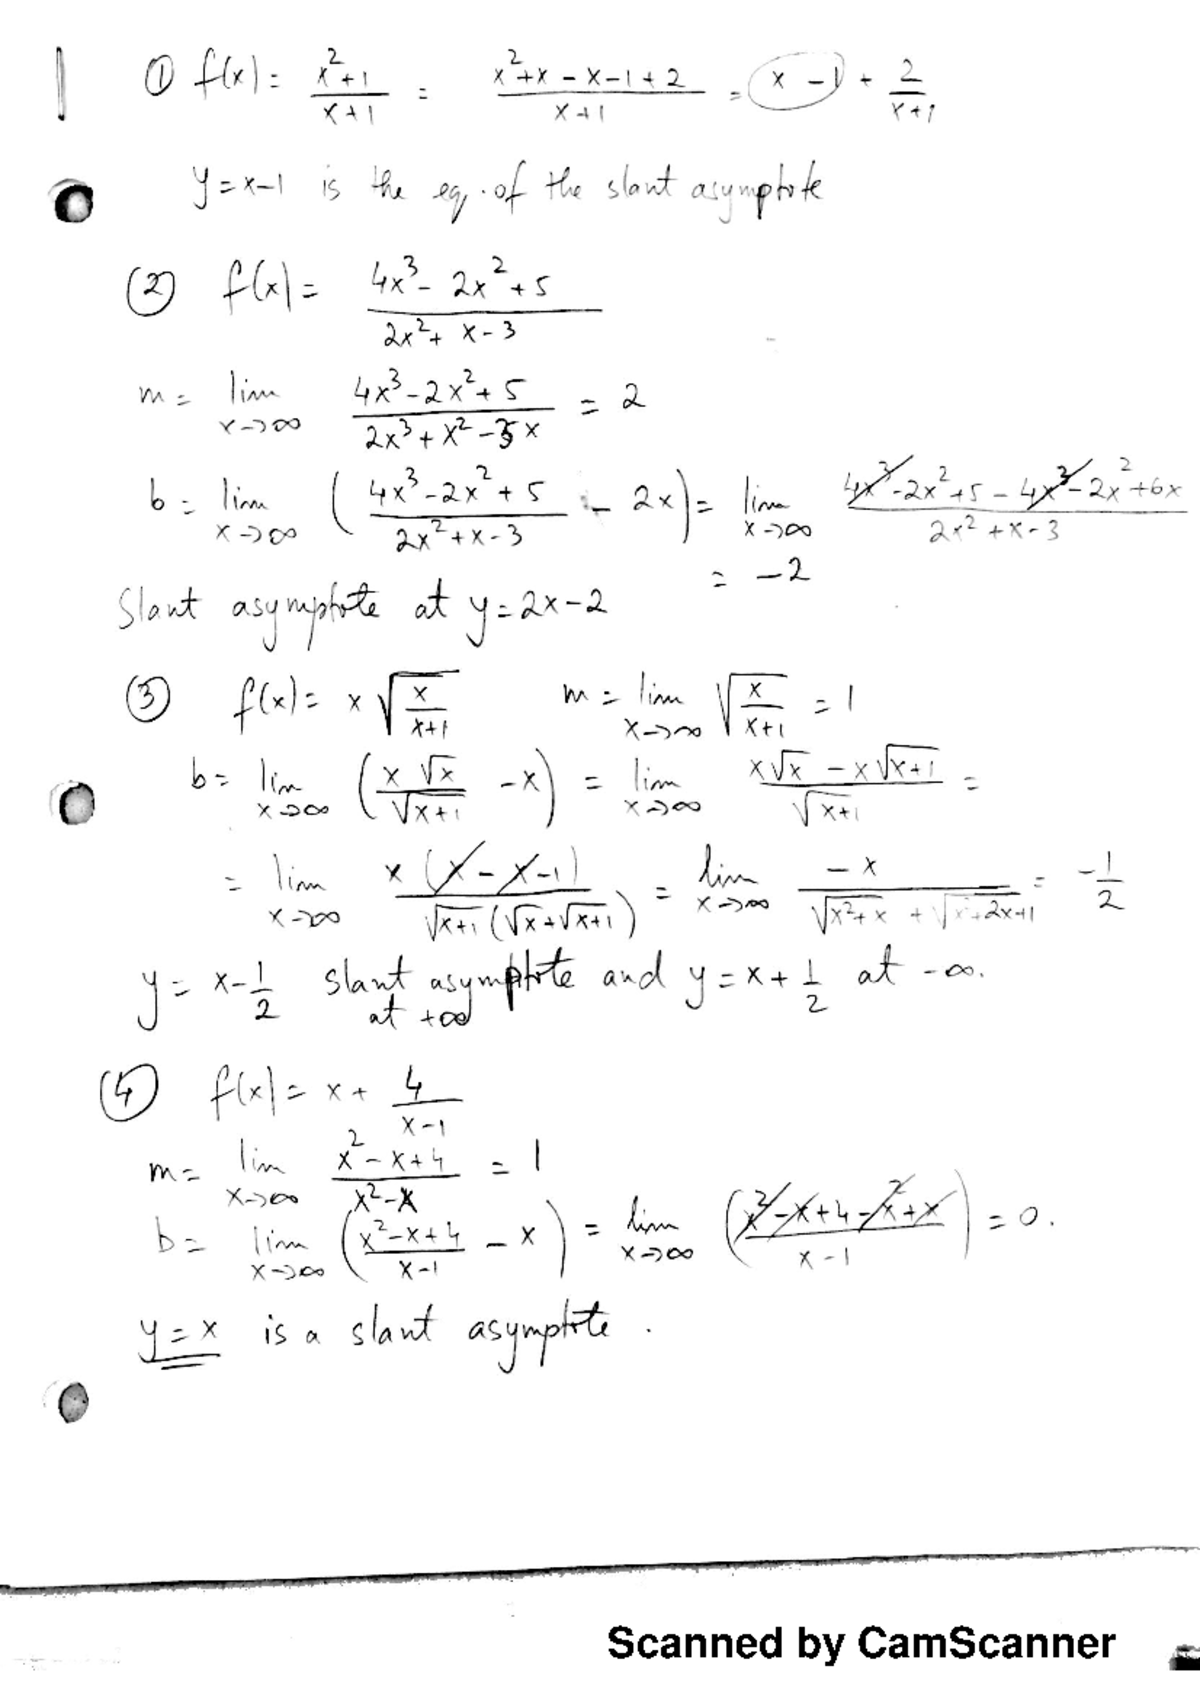 ① f(x) = (x²+1)/(x+1) = (x²+x-x-1+2)/(x+1) = x-1 + 2/(x+1)
y=x-1 is the eq. of the slant asymptote
② f(x) = (4x³-2x²+5)/(2x²+x-3)
m = lim x→∞ (4x³-2x²+5)/(2x³+x²-3x) = 2
b = lim x→∞ ((4x³-2x²+5)/(2x²+x-3) - 2x) = lim x→∞ (4x³-2x²+5-4x³-2x²+6x)/(2x²+x-3)
= -2
Slant asymptote at y=2x-2
③ f(x) = x√(x/(x+1)) m = lim x→∞ √(x/(x+1)) = 1
b = lim x→∞ (x√x/√(x+1) - x) = lim x→∞ (x√x - x√(x+1))/√(x+1) =
= lim x→∞ x(x-x-1)/(√(x+1)(√x+√(x+1))) = lim x→∞ -x/(√(x²+x) + √(x²+2x+1)) = -1/2
y = x-1/2 slant asymptote and y = x+1/2 at -∞.
at +∞
④ f(x) = x + 4/(x-1)
m = lim x→∞ (x²-x+4)/(x²-x) = 1
b = lim x→∞ ((x²-x+4)/(x-1) - x) = lim x→∞ ((x²-x+4-x²+x)/(x-1)) = 0.
y=x is a slant asymptote.
Scanned by CamScanner